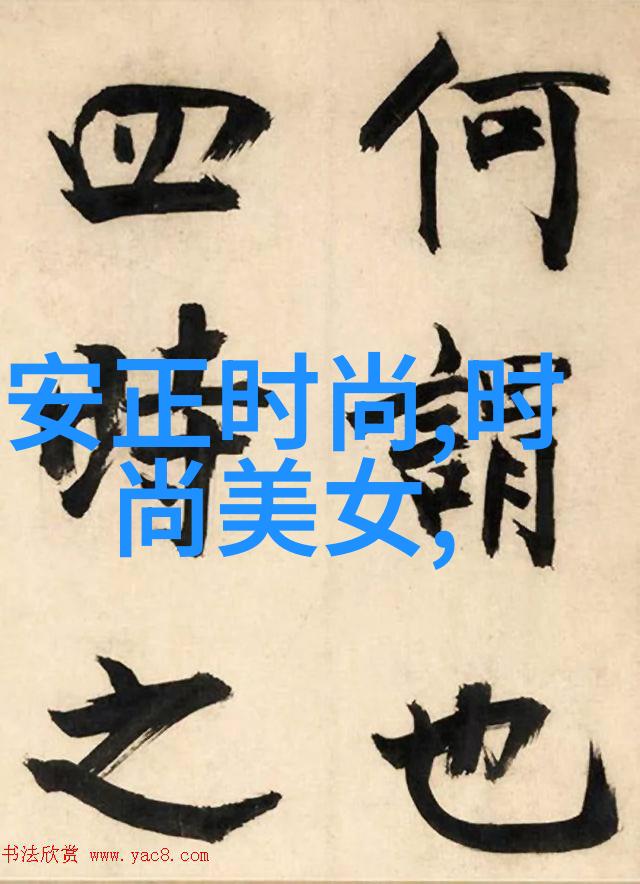 何謂也
四時之
安正时尚,时
尚美女,
书法欣赏 www.yac8.com